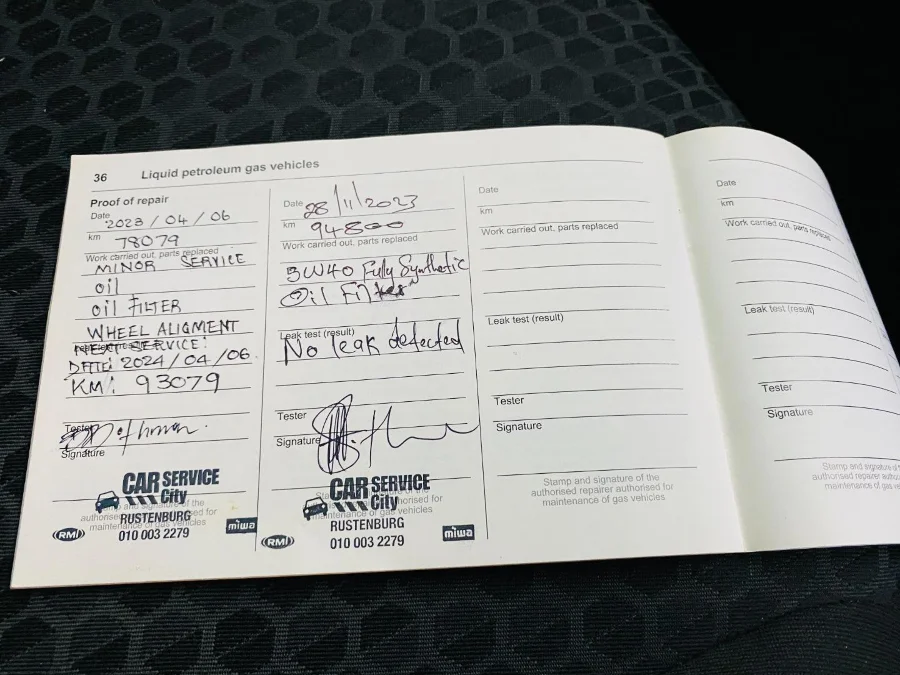 36 Liquid petroleum gas vehicles
Proof of repair
Date 2023/04/06
km 78079
Work carried out, parts replaced
MINOR SERVICE
oil
oil FILTER
WHEEL ALIGMENT
NEXT SERVICE:
DATE: 2024/04/06.
KM: 93079
Tester
Signature
CAR SERVICE
City
authorised for
maintenance of gas vehicles
RUSTENBURG
010 003 2279
RMI
miwa
Date 28/11/2023
km 94800
Work carried out, parts replaced
5W40 Fully Synthetic
Oil Filter
Leak test (result)
No leak detected
Tester
Signature
CAR SERVICE
City
RUSTENBURG
010 003 2279
RMI
miwa
Date
km
Work carried out, parts replaced
Leak test (result)
Tester
Signature
Stamp and signature of the
authorised repairer authorised for
maintenance of gas vehicles
Date
km
Work carried out, parts replaced
Leak test (result)
Tester
Signature
Stamp and signature of
authorised repairer
maintenance of gas